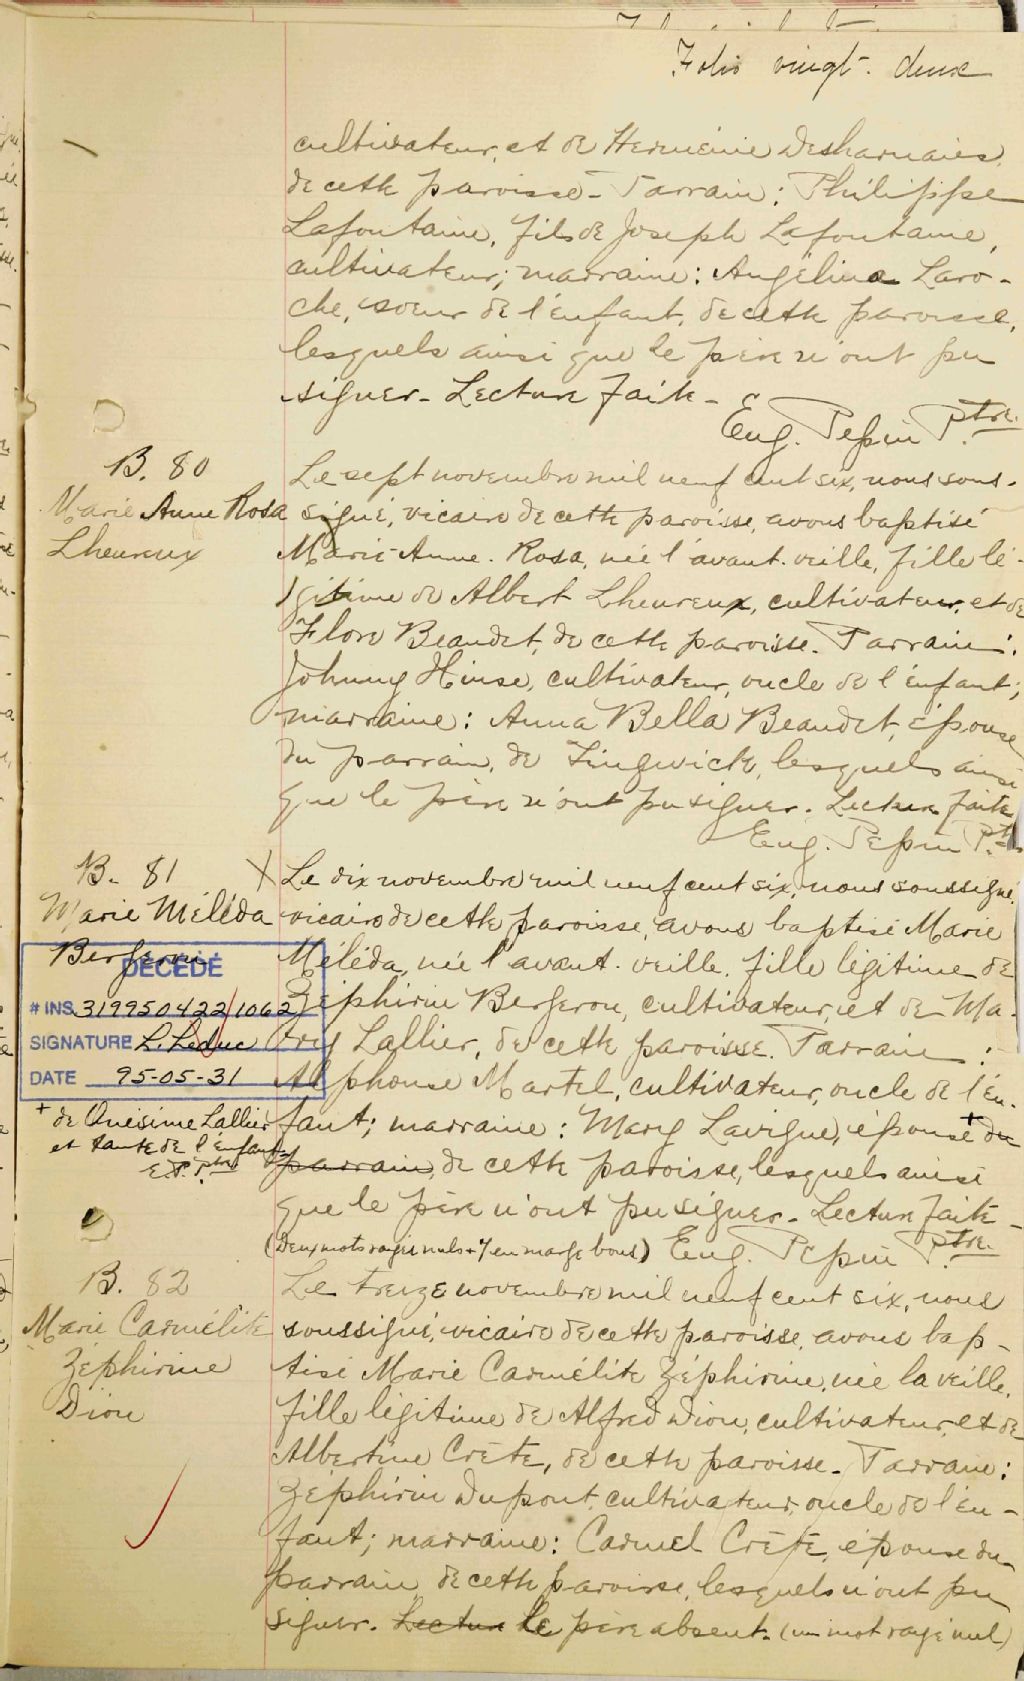 Folio vingt-deux
cultivateur, et de Herménie Desharnais,
de cette paroisse - Parrain: Philippe
Lafontaine, fils de Joseph Lafontaine,
cultivateur; marraine: Angélina Laro-
che, soeur de l'enfant, de cette paroisse,
lesquels ainsi que le père n'ont pu
signer - Lecture faite -
Eug. Pepin Ptre.
B. 80
Marie Anne Rosa
Lheureux
Le sept novembre mil neuf cent six, nous sous-
signé, vicaire de cette paroisse, avons baptisé
Marie-Anne-Rosa, née l'avant-veille, fille lé-
gitime de Albert Lheureux, cultivateur, et de
Flore Beaudet, de cette paroisse. Parrain:
Johnny Hinse, cultivateur, oncle de l'enfant;
marraine: Anna Bella Beaudet, épouse
du parrain, de Lingwick, lesquels ainsi
que le père n'ont pu signer. Lecture faite
Eug. Pepin Ptre
B. 81
Marie Méléda
Bergeron
DÉCÉDÉ
# INS. 319950422 1062
SIGNATURE L. Leduc
DATE 95-05-31
+ de Onésime Lallier
et tante de l'enfant
E.P. Ptre
X Le dix novembre mil neuf cent six, nous soussigné,
vicaire de cette paroisse, avons baptisé Marie
Méléda, née l'avant-veille, fille légitime de
Zéphirin Bergeron, cultivateur, et de Ma-
ry Lallier, de cette paroisse. Parrain:
Alphonse Martel, cultivateur, oncle de l'en-
fant; marraine: Mary Lavigne, épouse + du
parrain, de cette paroisse, lesquels ainsi
que le père n'ont pu signer - Lecture faite -
(Deux mots rayés nuls + 7 en marge bons) Eug. Pepin Ptre.
B. 82
Marie Carmélite
Zéphirine
Dion
Le treize novembre mil neuf cent six, nous
soussigné, vicaire de cette paroisse, avons bap-
tisé Marie Carmélite Zéphirine, née la veille,
fille légitime de Alfred Dion, cultivateur, et de
Albertine Crête, de cette paroisse - Parrain:
Zéphirin Dupont, cultivateur, oncle de l'en-
fant; marraine: Carmel Crête, épouse du
parrain, de cette paroisse, lesquels n'ont pu
signer. Lecture le père absent. (un mot rayé nul)